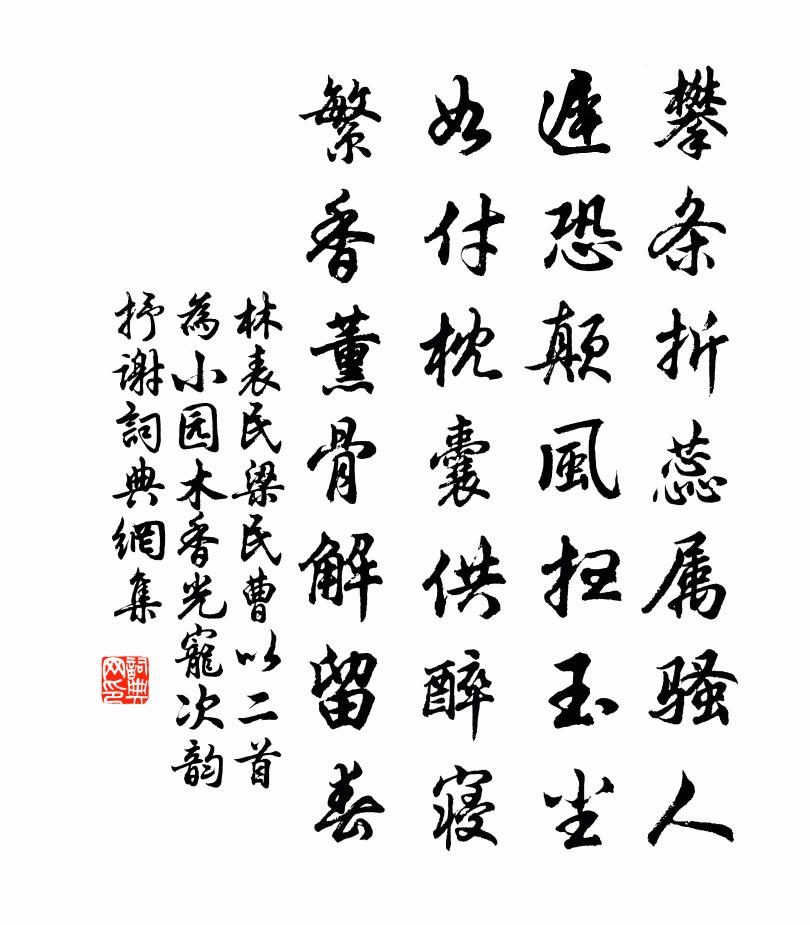 攀条折蕊属骚人
遲恐颠風扫玉尘
如付枕囊供醉寝
繁香薰骨解留春
林表民梁民曹以二首
為小园木香光寵次韵
抒谢詞典網集
詞典网印